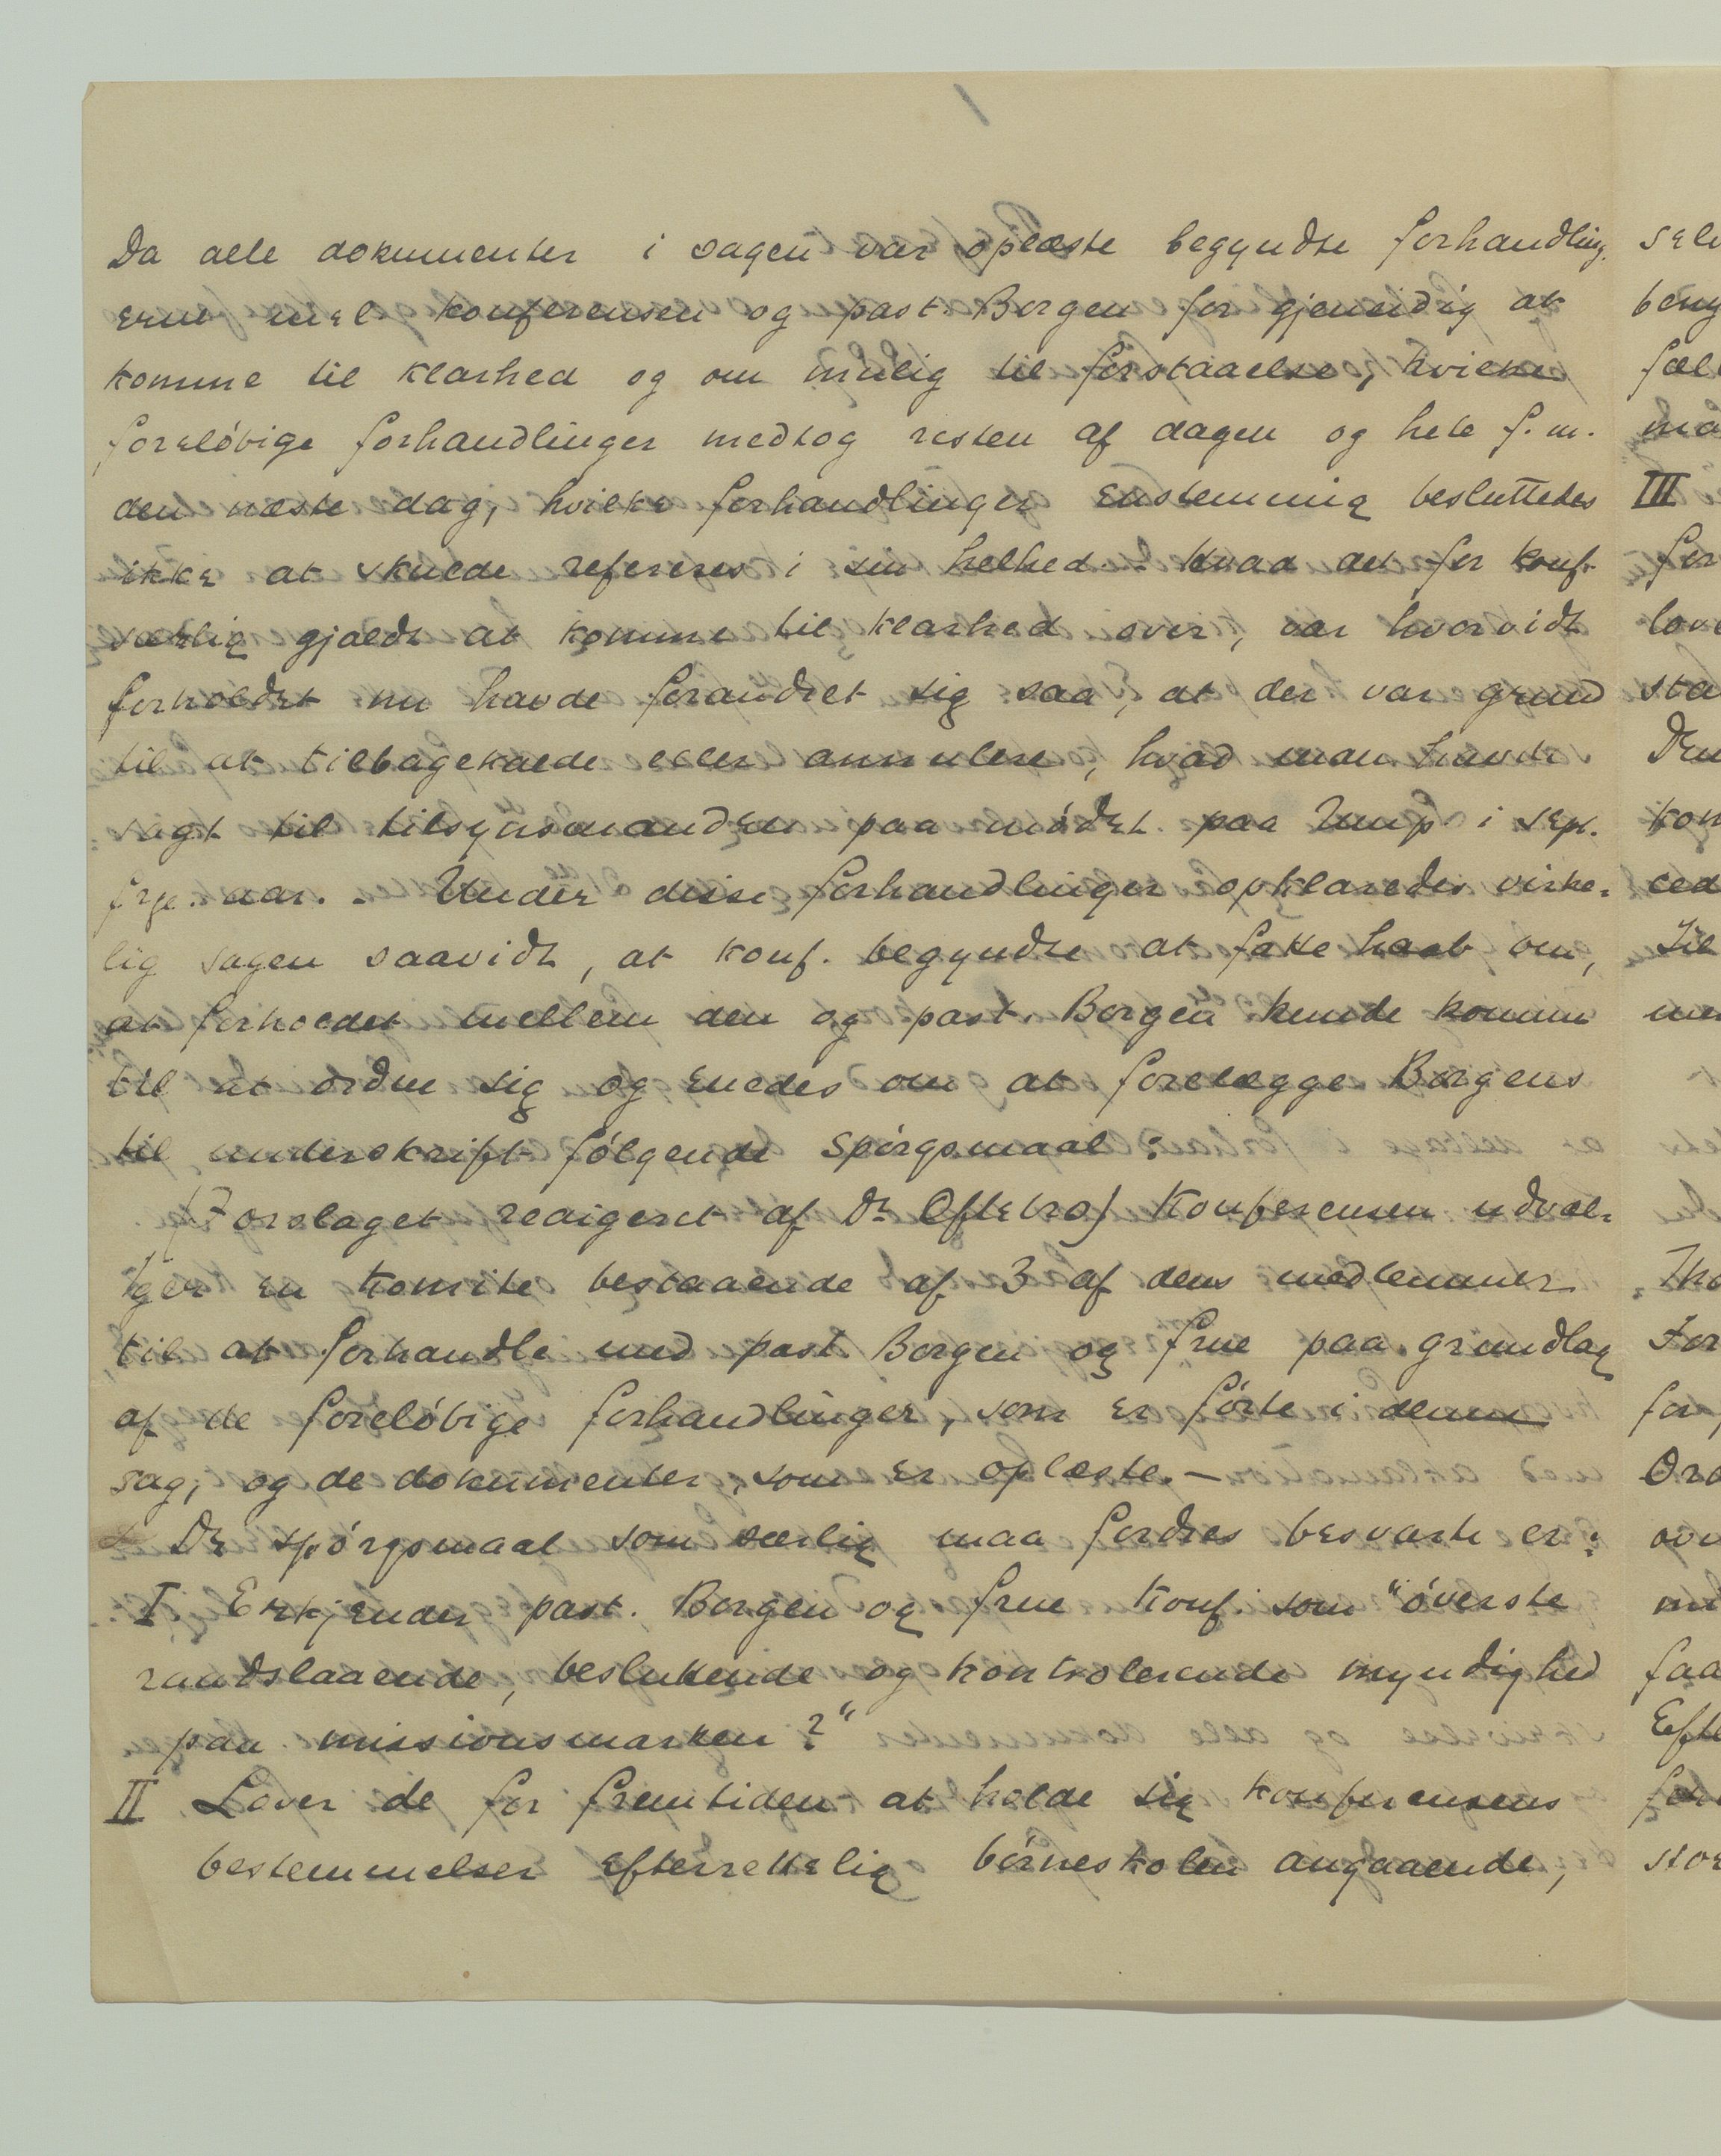 Da alle dokumenter i sagen var oplæste begyndte forhandling-
erne mel. konferensen og past. Borgen for gjensidig at
komme til klarhed og om mulig til forstaaelse, hvilke
foreløbige forhandlinger medtog resten af dagen og hele f.m.
den næste dag, hvilke forhandlinger enstemmig besluttedes
ikke at skulde refereres i sin helhed. - Hvad det for konf.
særlig gjaldt at komme til klarhed over, var hvorvidt
forholdet nu havde forandret sig saa, at der var grund
til at tilbagekalde eller annulere, hvad man havde
sagt til tilsynsmanden paa mødet paa Ump. i sept.
frge. aar. - Under disse forhandlinger opklaredes virke-
lig sagen saavidt, at konf. begyndte at fatte haab om,
at forholdet mellem den og past. Borgen kunde komme
til at ordne sig og enedes om at forelægge Borgens
til underskrift følgende spørgsmaal:
(Forslaget redigeret af Dr Oftebro) Konferensen udvæl-
ger en komite bestaaende af 3 af dens medlemmer
til at forhandle med past. Borgen og frue paa grundlag
af de foreløbige forhandlinger, som er førte i denne
sag, og de dokumenter, som er oplæste. -
De spørgsmaal som særlig maa fordres besvarte er:
I Erkjender past. Borgen og frue konf. som "øverste
raadslaaende, besluttende og kontrolerende myndighed
paa missionsmarken?"
II Lover de for fremtiden at holde sig konferensens
bestemmelser efterrettelig børneskolen angaaende,
III